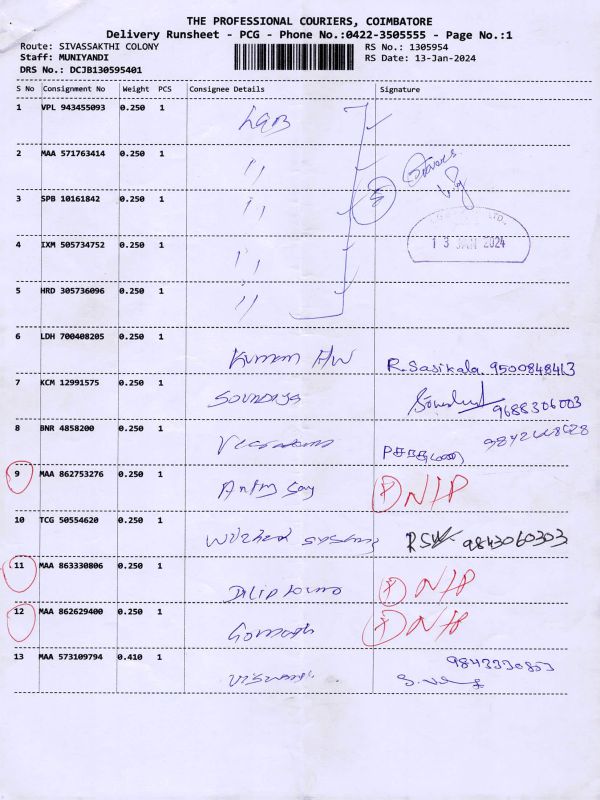 THE PROFESSIONAL COURIERS, COIMBATORE
Delivery Runsheet - PCG - Phone No.:0422-3505555 - Page No.:1
Route: SIVASSAKTHI COLONY RS No.: 1305954
Staff: MUNIYANDI RS Date: 13-Jan-2024
DRS No.: DCJB130595401
S No Consignment No Weight PCS Consignee Details Signature
1 VPL 943455093 0.250 1
2 MAA 571763414 0.250 1 ,,
3 SPB 10161842 0.250 1 ,,
LTD.
13 JAN 2024
4 IXM 505734752 0.250 1 ,,
5 HRD 305736096 0.250 1 ,,
6 LDH 700408205 0.250 1 H/W R. Sasikala. 9500848413
7 KCM 12991575 0.250 1 9688306003
8 BNR 4858200 0.250 1
9 MAA 862753276 0.250 1 N/P
10 TCG 50554620 0.250 1 systems 9843060303
11 MAA 863330806 0.250 1 N/P
12 MAA 862629400 0.250 1 N/P
13 MAA 573109794 0.410 1 9843330853